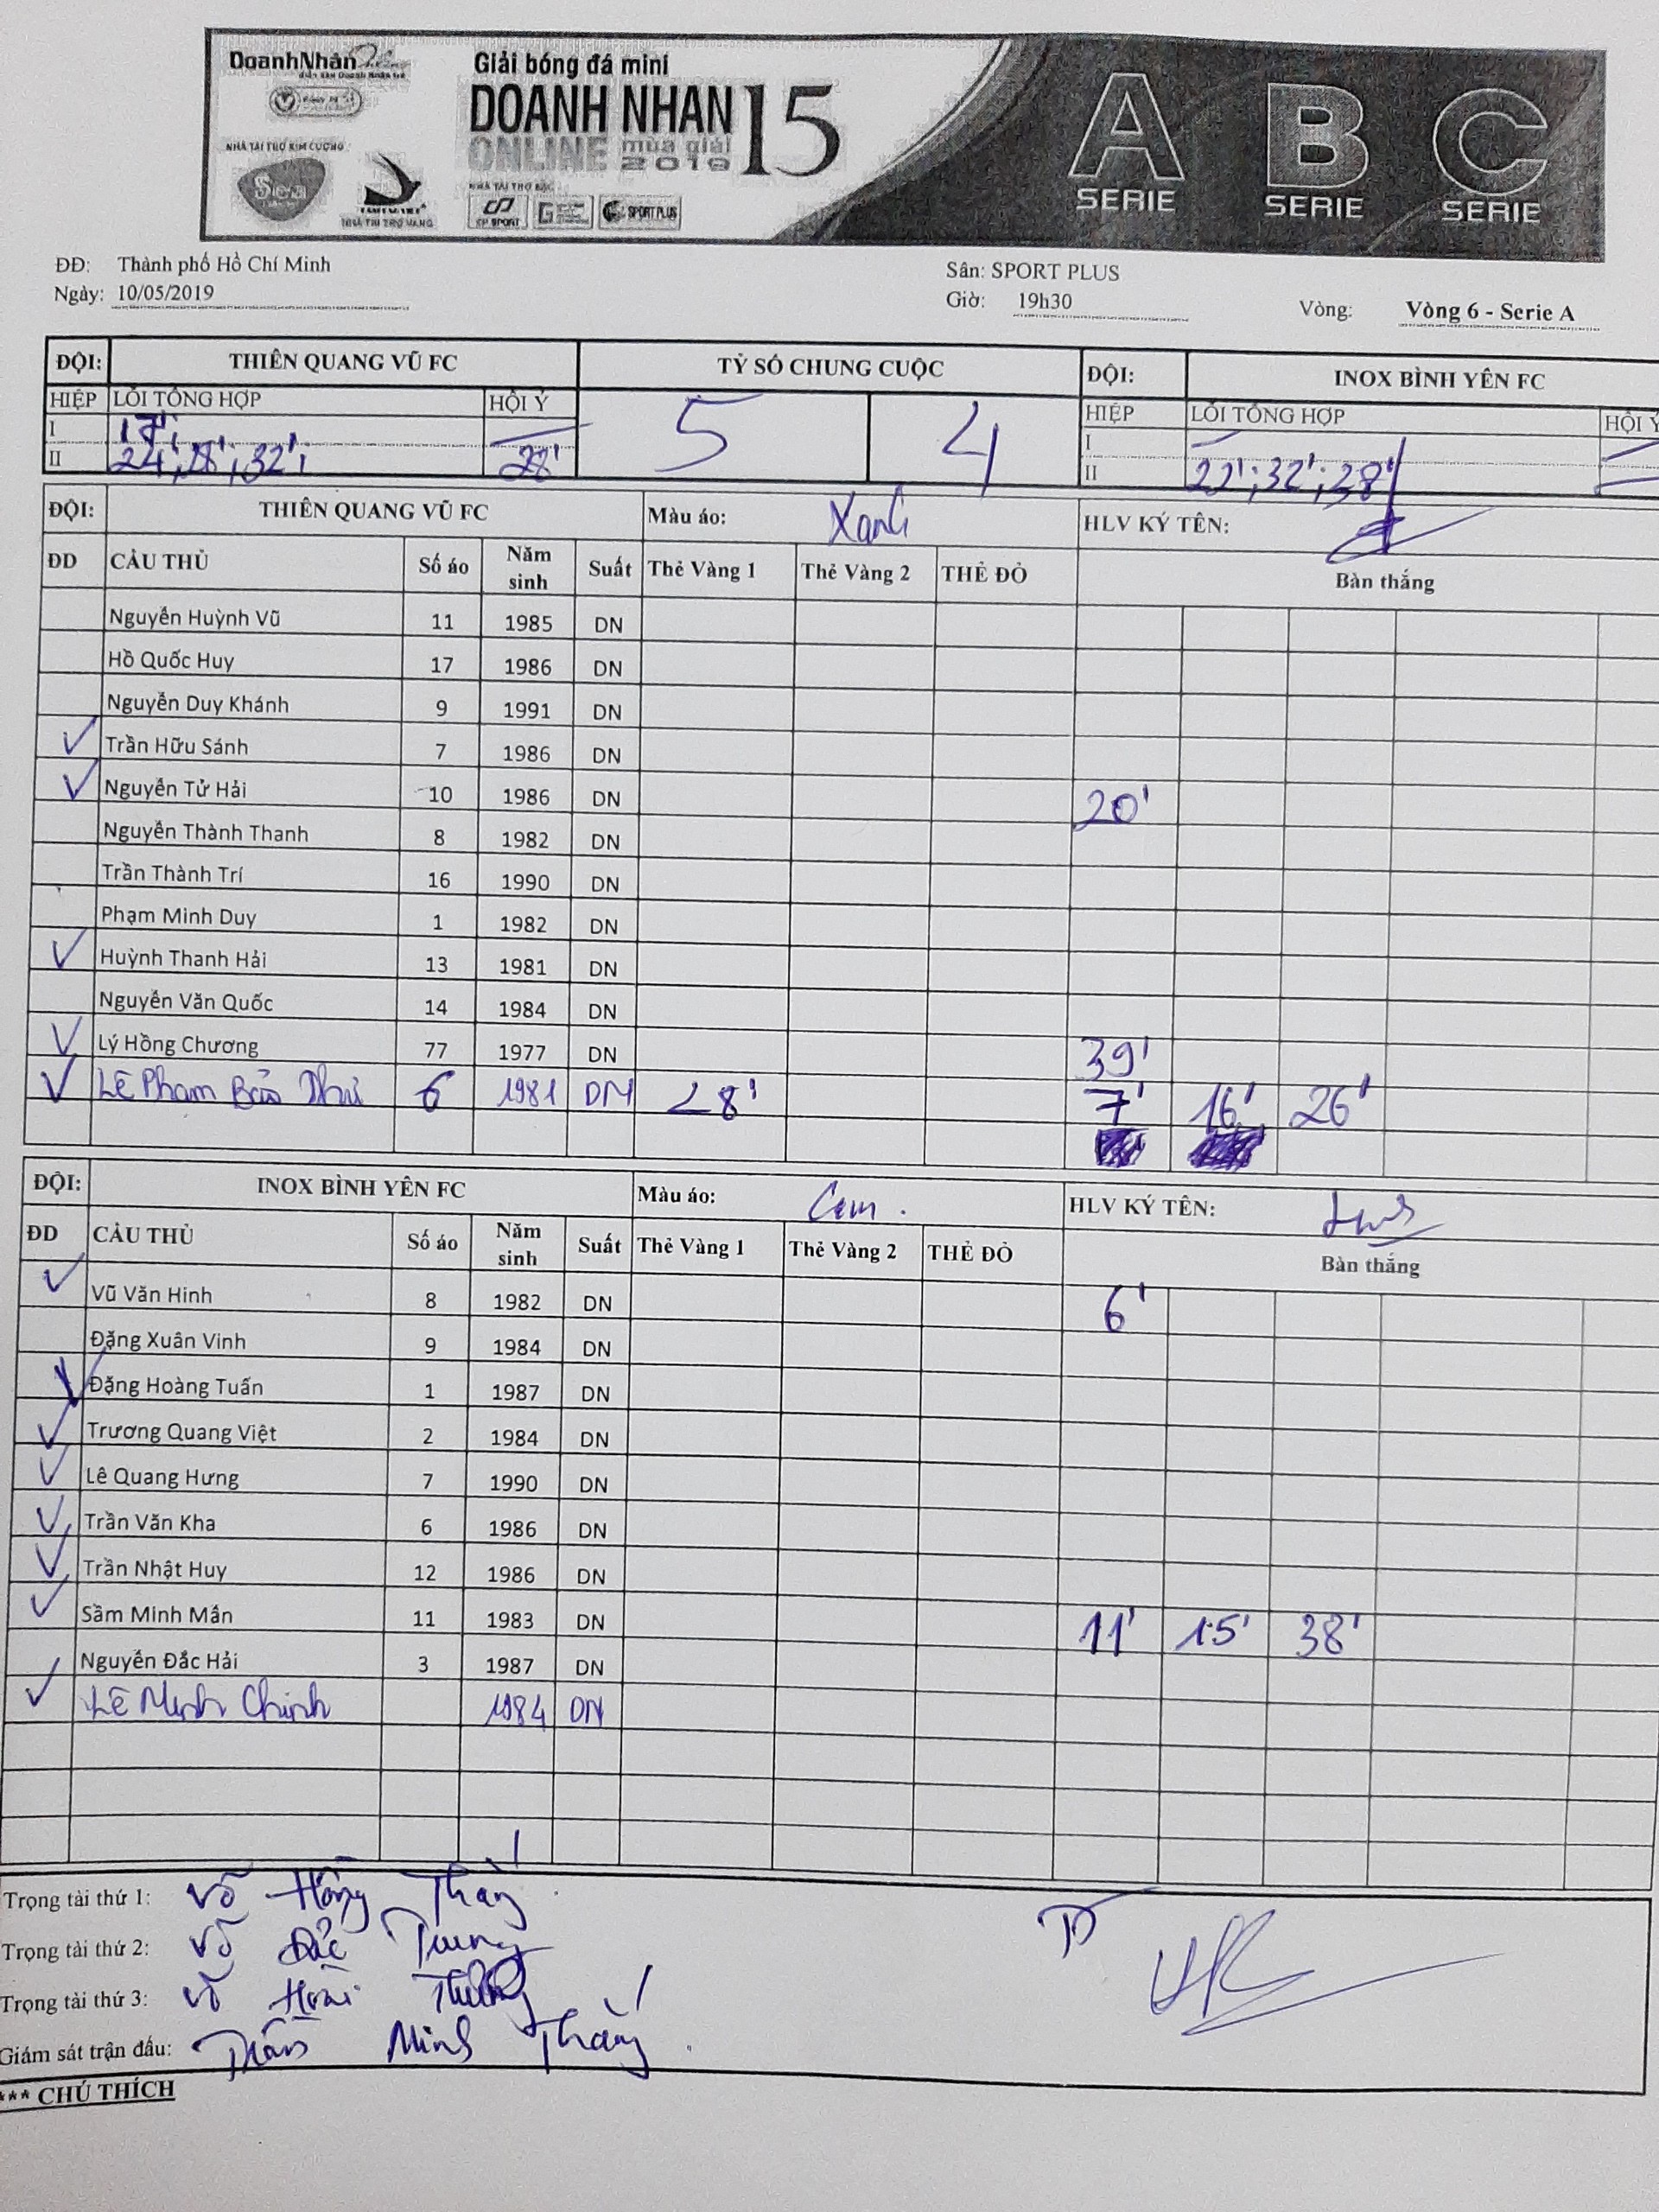 DoanhNhân
Giải bóng đá mini
DOANH NHAN 15
ONLINE mùa giải 2019
NHÀ TÀI TRỢ KIM CƯƠNG
NHÀ TÀI TRỢ VÀNG
NHÀ TÀI TRỢ BẠC
Siena
CP SPORT
SPORT PLUS
A SERIE B SERIE C SERIE
ĐĐ: Thành phố Hồ Chí Minh Sân: SPORT PLUS
Ngày: 10/05/2019 Giờ: 19h30 Vòng: Vòng 6 - Serie A
ĐỘI: THIÊN QUANG VŨ FC TỶ SỐ CHUNG CUỘC ĐỘI: INOX BÌNH YÊN FC
HIỆP LỖI TỔNG HỢP HỘI Ý 5 4 HIỆP LỖI TỔNG HỢP HỘI Ý
I 17'; I
II 24'; 28'; 32'; 28' II 22'; 32'; 38'
ĐỘI: THIÊN QUANG VŨ FC Màu áo: Xanh HLV KÝ TÊN:
ĐD CẦU THỦ Số áo Năm sinh Suất Thẻ Vàng 1 Thẻ Vàng 2 THẺ ĐỎ Bàn thắng
Nguyễn Huỳnh Vũ 11 1985 DN
Hồ Quốc Huy 17 1986 DN
Nguyễn Duy Khánh 9 1991 DN
✓ Trần Hữu Sánh 7 1986 DN
✓ Nguyễn Tử Hải 10 1986 DN 20'
Nguyễn Thành Thanh 8 1982 DN
Trần Thành Trí 16 1990 DN
Phạm Minh Duy 1 1982 DN
✓ Huỳnh Thanh Hải 13 1981 DN
Nguyễn Văn Quốc 14 1984 DN
✓ Lý Hồng Chương 77 1977 DN 39'
✓ Lê Phạm Bảo Thư 6 1981 DN 28' 7' 16' 26'
ĐỘI: INOX BÌNH YÊN FC Màu áo: Cam . HLV KÝ TÊN:
ĐD CẦU THỦ Số áo Năm sinh Suất Thẻ Vàng 1 Thẻ Vàng 2 THẺ ĐỎ Bàn thắng
✓ Vũ Văn Hinh 8 1982 DN 6'
Đặng Xuân Vinh 9 1984 DN
✓ Đặng Hoàng Tuấn 1 1987 DN
✓ Trương Quang Việt 2 1984 DN
✓ Lê Quang Hưng 7 1990 DN
✓ Trần Văn Kha 6 1986 DN
✓ Trần Nhật Huy 12 1986 DN
✓ Sầm Minh Mẫn 11 1983 DN 11' 15' 38'
Nguyễn Đắc Hải 3 1987 DN
✓ Lê Minh Chinh 1984 DN
Trọng tài thứ 1: Võ Hồng Thắng
Trọng tài thứ 2: Võ Đắc Trung
Trọng tài thứ 3: Võ Hoài
Giám sát trận đấu: Trần Minh Thắng .
*** CHÚ THÍCH